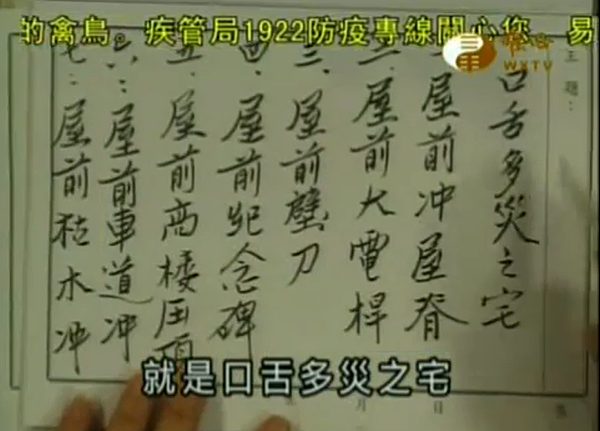 的禽鳥。疾管局1922防疫專線關心您　易
唯心
WXTV
主題：
口舌多災之宅
一、屋前冲屋脊
二、屋前大電桿
三、屋前壁刀
四、屋前紀念碑
五、屋前高楼压頂
六：屋前車道冲
七：屋前枯木冲
月　日
就是口舌多災之宅